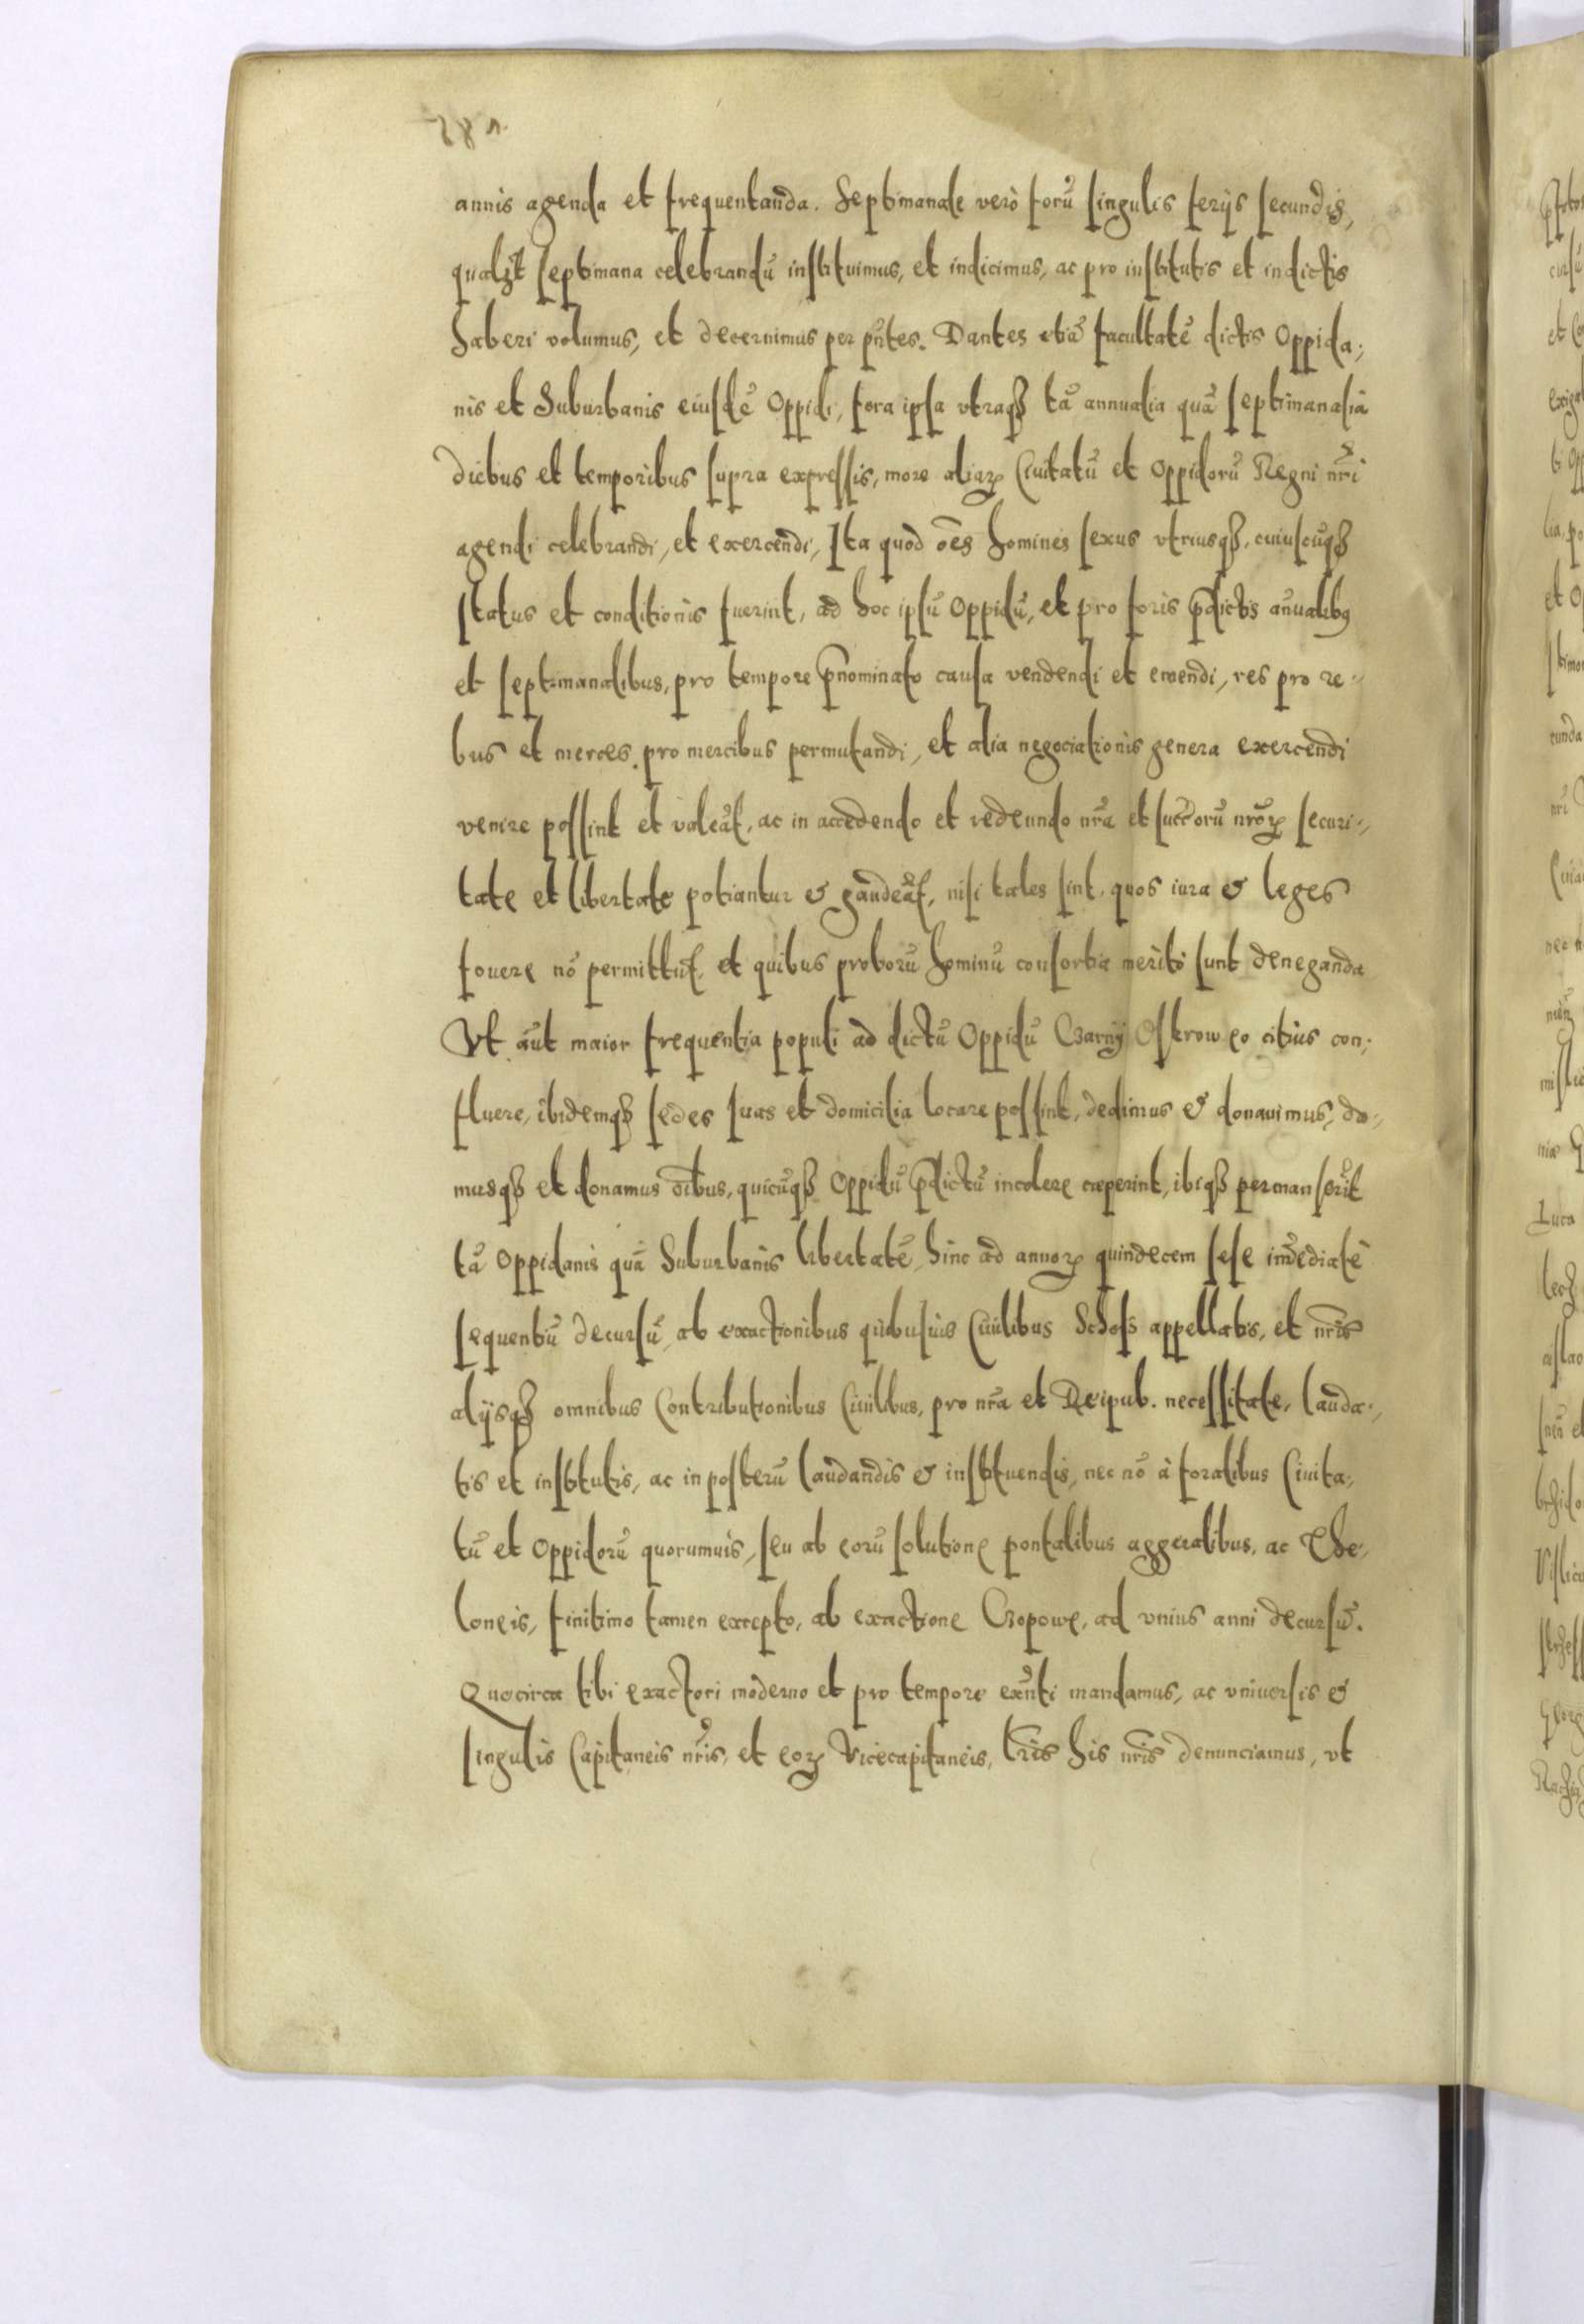 annis agenda et frequentanda. Septimanale verò forũ singulis ferijs secundis,
qualꝫt septimana celebrandũ instituimus, et indicimus, ac pro institutis et indictis
haberi volumus, et decernimus per pñtes. Dantes etiã facultatẽ dictis Oppida,
nis et Suburbanis eiusdẽ Oppidi, fora ipsa vtraqꝫ tã annualia quã septimanalia
diebus et temporibus supra expressis, more aliaꝝ Ciuitatũ et Oppidorũ Regni nr̃i
agendi celebrandi, et exercendi, Ita quòd oẽs homines sexus vtriusqꝫ, cuiuscũqꝫ
status et conditionis fuerint, ad hoc ipsũ Oppidũ, et pro foris p̃dictis añualibꝰ
et septimanalibus, pro tempore p̃nominato causa vendendi et emendi, res pro re-
bus et merces pro mercibus permutandi, et alia negociationis genera exercendi
venire possint et valeãt, ac in accedendo et redeundo nr̃a et succ̃orũ nr̃oꝝ securi-
tate et libertate potiantur & gaudeãt, nisi tales sint, quos iura & leges
fouere nõ permittũt, et quibus proborũ hominũ consortia meritò sunt deneganda
Vt aũt maior frequentia populi ad dictũ Oppidũ Czarnÿ Ostrow eo citiùs con,
fluere, ibidemqꝫ sedes suas et domicilia locare possint, dedimus & donauimus, da,
musqꝫ et donamus oĩbus, quicũqꝫ Oppidũ p̃dictũ incolere cæperint, ibiqꝫ permanserĩt
tã Oppidanis quã Suburbanis libertatẽ, hinc ad annoꝝ quindecem sese im̃ediatè
sequentiũ decursũ, ab exactionibus quibusuis Ciuilibus Schoss appellatis, et nr̃is
alijsqꝫ omnibus Contributionibus Ciuilibus, pro nr̃a et Reipub. necessitate, lauda,
tis et institutis, ac in posterũ laudandis & instituendis, nec nõ à foralibus Ciuita,
tũ et Oppidorũ quorumuis, seu ab eorũ solutione pontalibus aggeralibus, ac The,
loneis, finitimo tamen excepto, ab exactione Czopowe, ad vnius anni decursũ.
Quocirca tibi exactori moderno et pro tempore exñti mandamus, ac vniuersis &
singulis Capitaneis nr̃is, et eoꝝ Vicecapitaneis, lr̃is his nr̃is denunciamus, vt